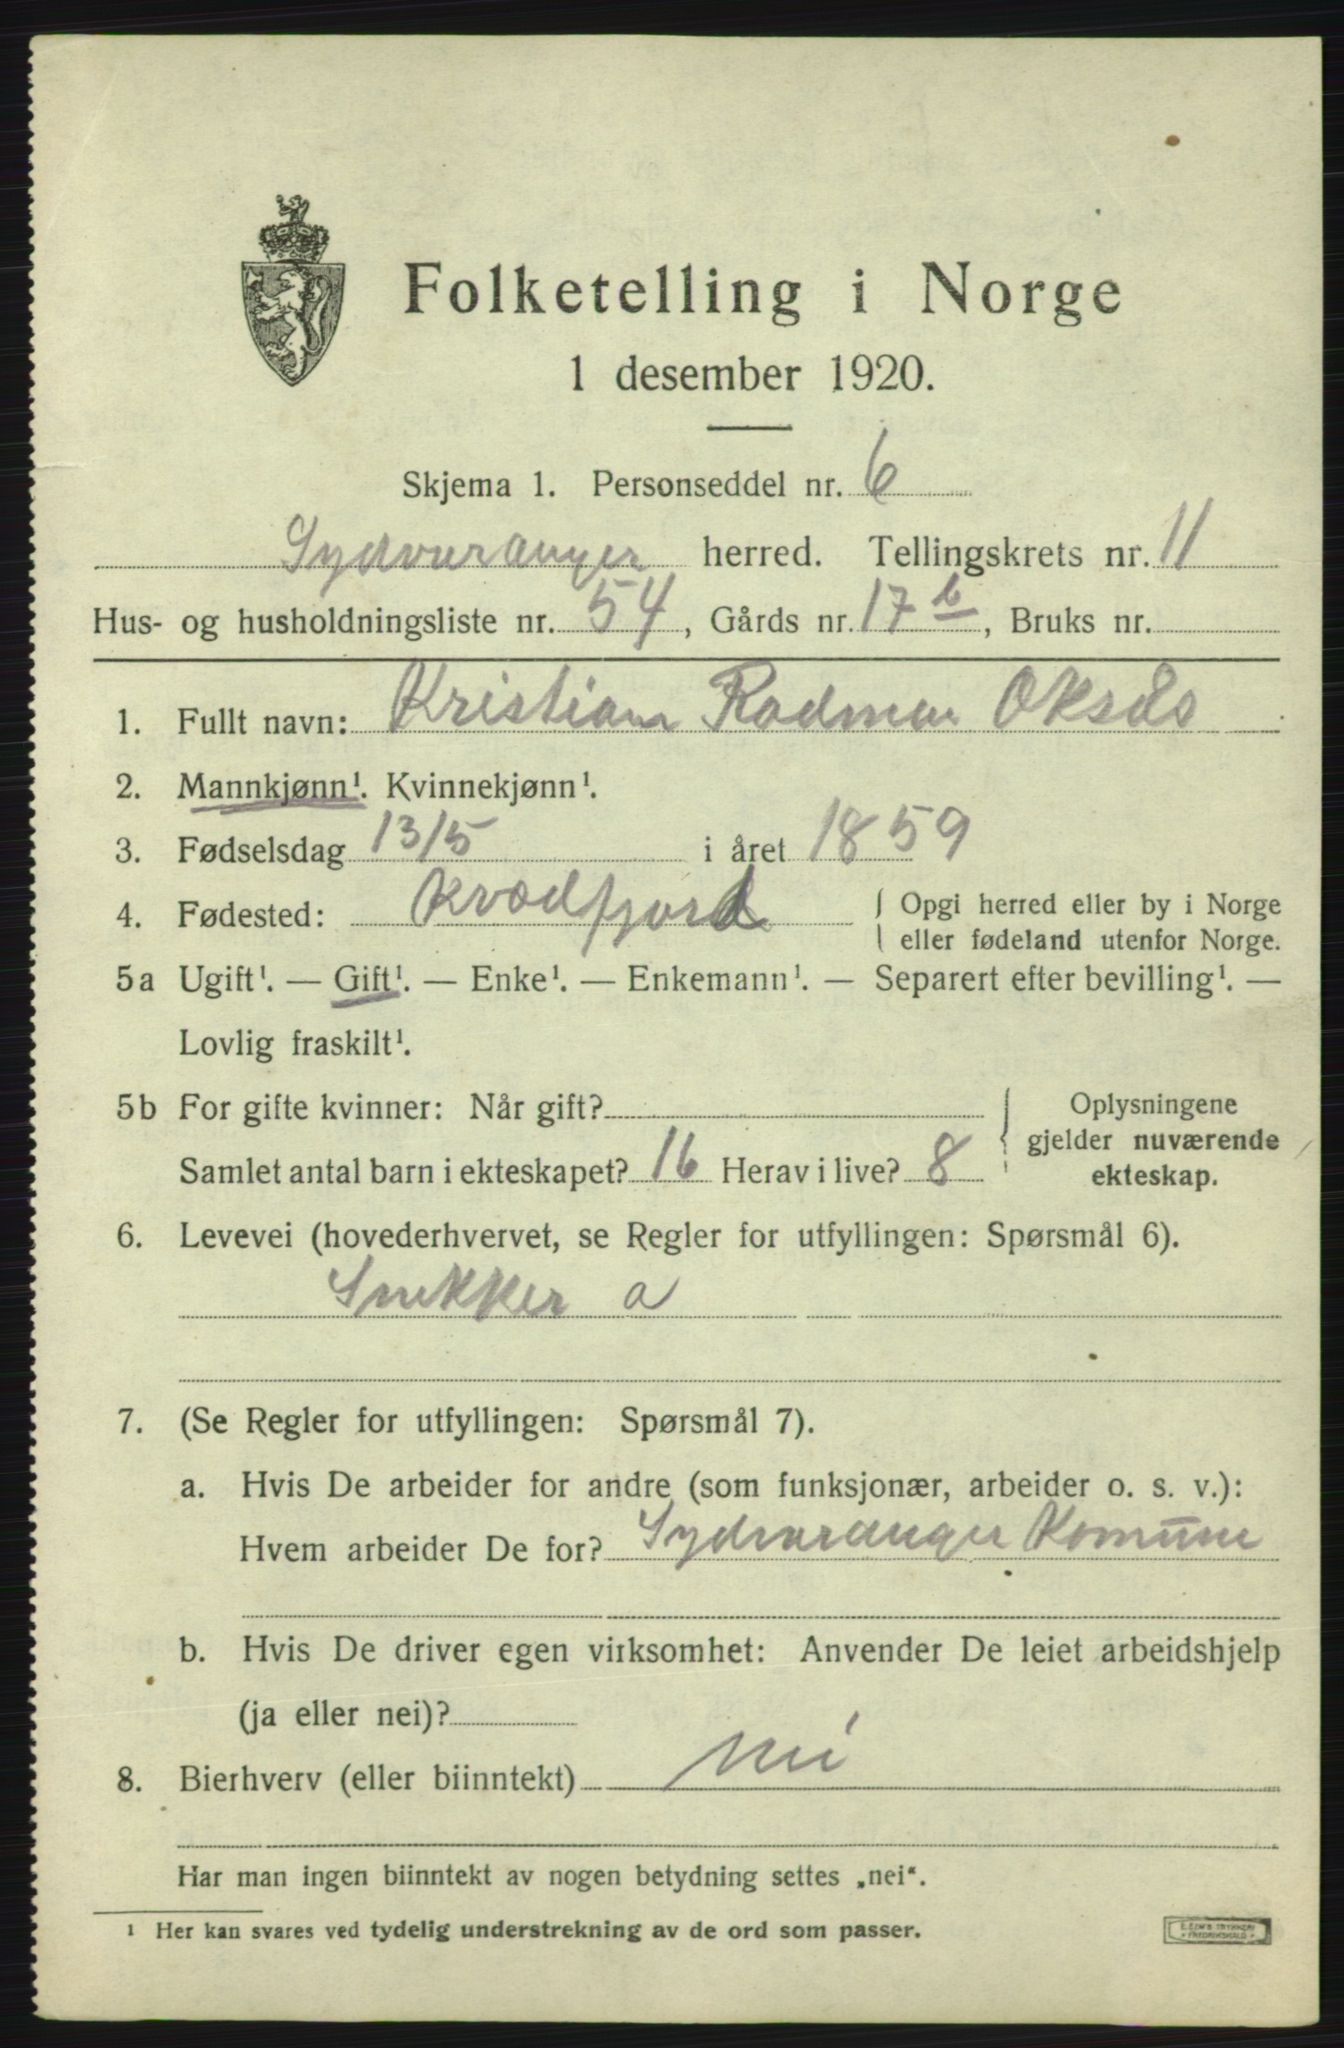 Folketelling i Norge
1 desember 1920.
Skjema 1. Personseddel nr. 6
Sydvaranger herred. Tellingskrets nr. 11
Hus- og husholdningsliste nr. 54, Gårds nr. 17 b, Bruks nr.
1. Fullt navn: Kristian Rodman Oksås
2. Mannkjønn¹. Kvinnekjønn¹.
3. Fødselsdag 13/5 i året 1859
4. Fødested: Kvædfjord { Opgi herred eller by i Norge
eller fødeland utenfor Norge.
5a Ugift¹. — Gift¹. — Enke¹. — Enkemann¹. — Separert efter bevilling¹. —
Lovlig fraskilt¹.
5b For gifte kvinner: Når gift? { Oplysningene
gjelder nuværende
Samlet antal barn i ekteskapet? 16 Herav i live? 8 ekteskap.
6. Levevei (hovederhvervet, se Regler for utfyllingen: Spørsmål 6).
Snekker a
7. (Se Regler for utfyllingen: Spørsmål 7).
a. Hvis De arbeider for andre (som funksjonær, arbeider o. s. v.):
Hvem arbeider De for? Sydvaranger Komune
b. Hvis De driver egen virksomhet: Anvender De leiet arbeidshjelp
(ja eller nei)?
8. Bierhverv (eller biinntekt) nei
Har man ingen biinntekt av nogen betydning settes „nei“.
¹ Her kan svares ved tydelig understrekning av de ord som passer.